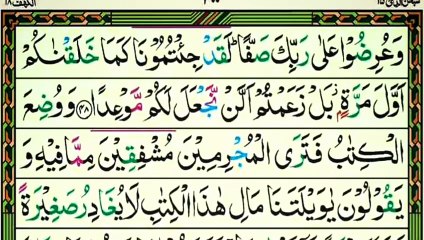 الكهف ١٨
وَعُرِضُوْا عَلٰى رَبِّكَ صَفًّا ؕ لَقَدْ جِئْتُمُوْنَا كَمَا خَلَقْنٰكُمْ
اَوَّلَ مَرَّةٍۭ ؗ بَلْ زَعَمْتُمْ اَلَّنْ نَّجْعَلَ لَكُمْ مَّوْعِدًا ﴿۴۸﴾ وَوُضِعَ
الْكِتٰبُ فَتَرَى الْمُجْرِمِيْنَ مُشْفِقِيْنَ مِمَّا فِيْهِ وَ
يَقُوْلُوْنَ يٰوَيْلَتَنَا مَالِ هٰذَا الْكِتٰبِ لَا يُغَادِرُ صَغِيْرَةً